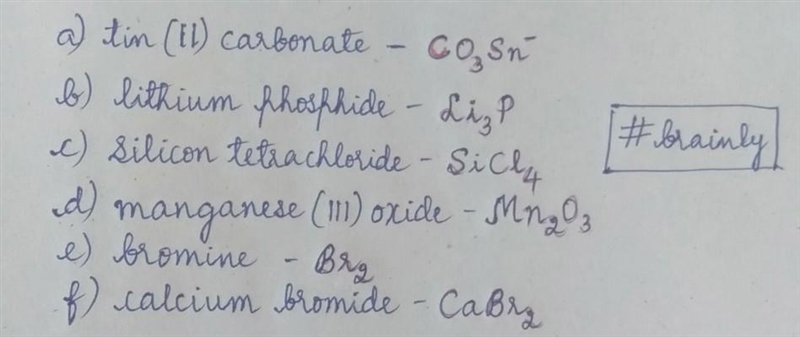 a) tin (II) carbonate - CO₃Sn⁻
b) lithium phosphide - Li₃P
c) Silicon tetrachloride - SiCl₄
d) manganese (III) oxide - Mn₂O₃
e) bromine - Br₂
f) calcium bromide - CaBr₂
#brainly